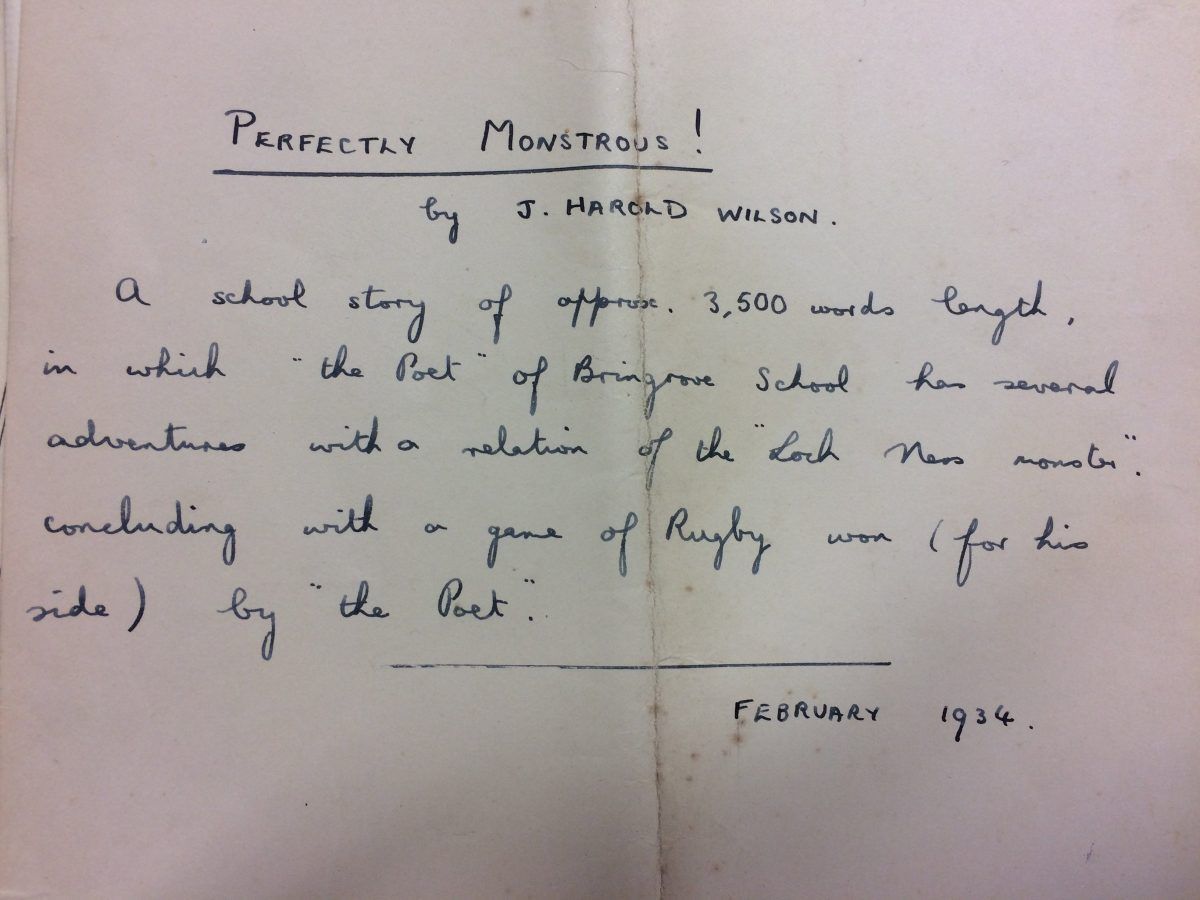 PERFECTLY MONSTROUS!
by J. HAROLD WILSON.
A school story of approx. 3,500 words length,
in which "the Poet" of Bringrove School has several
adventures with a relation of the "Loch Ness monster".
concluding with a game of Rugby won (for his
side) by "the Poet".
FEBRUARY 1934.